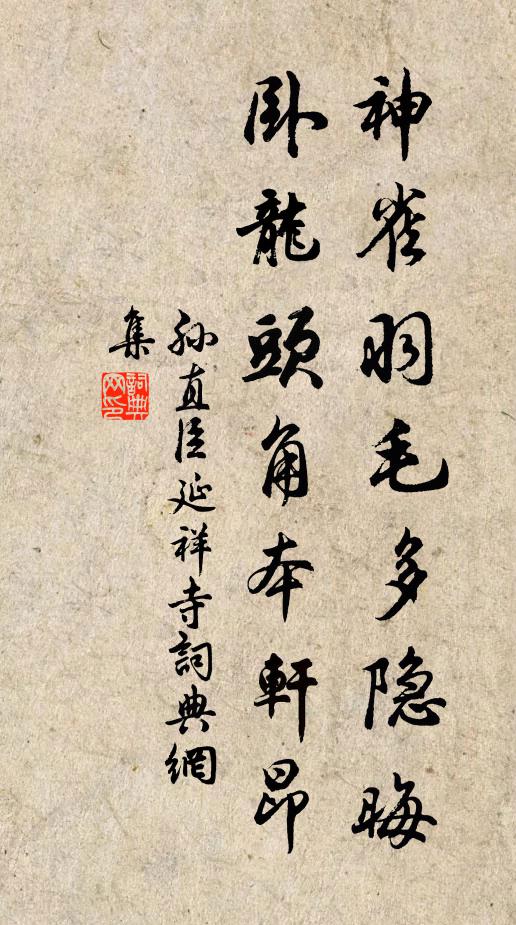 神雀羽毛多隐晦
卧龍頭角本軒昂
孙直臣延祥寺詞典網
集
詞典
网印